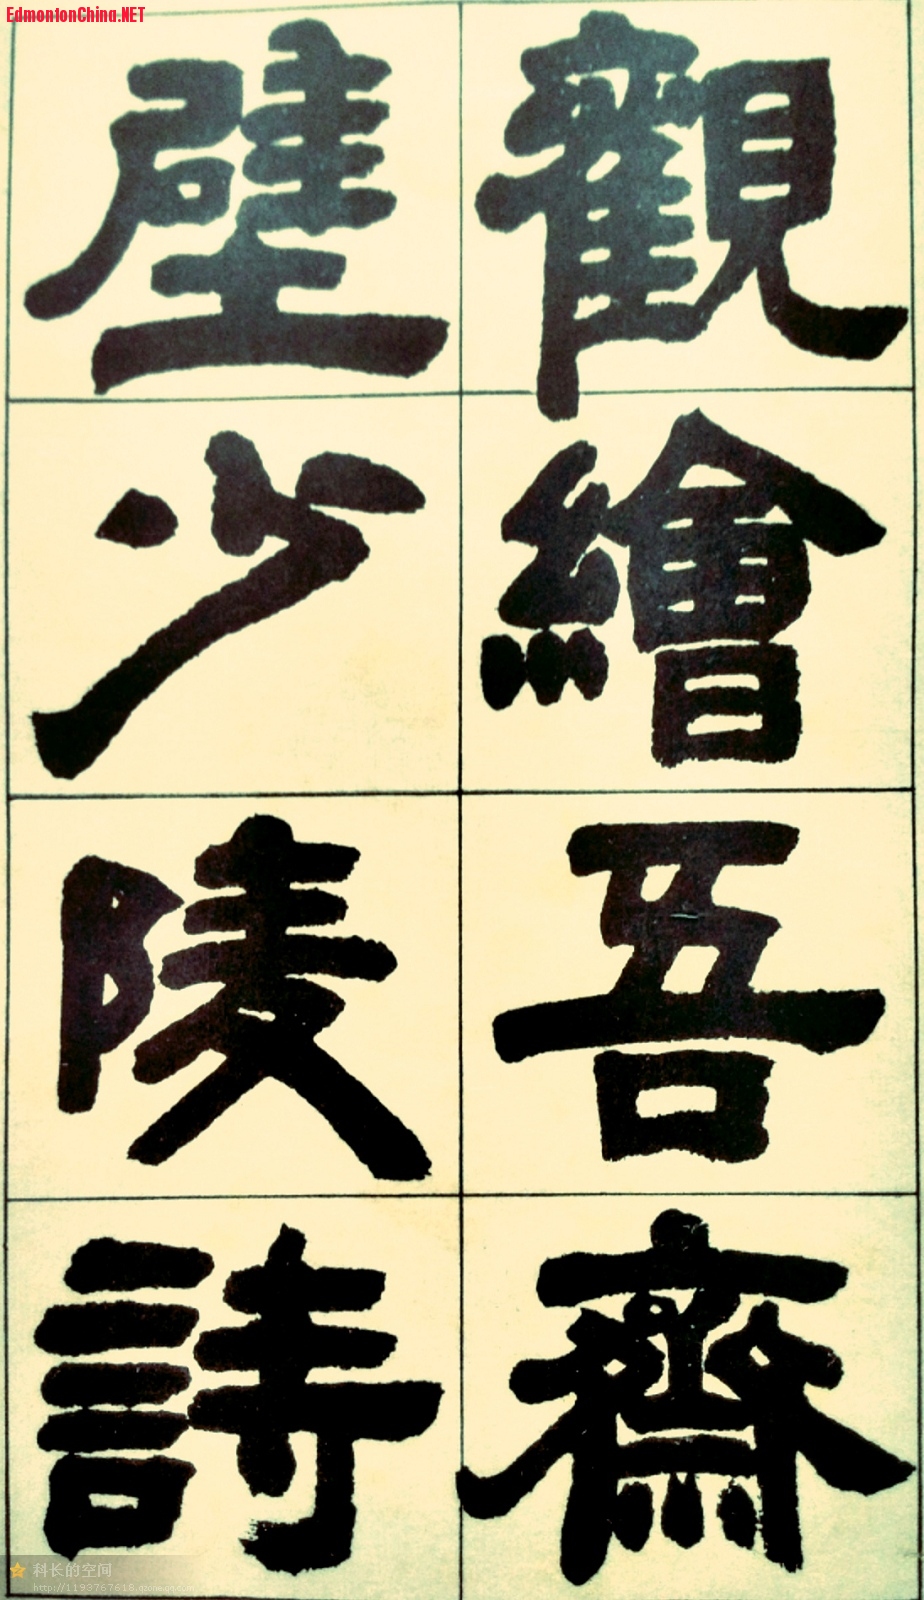 EdmontonChina.NET
觀繪吾齋
壁少陵詩
科长的空间
http://1193767618.qzone.qq.com